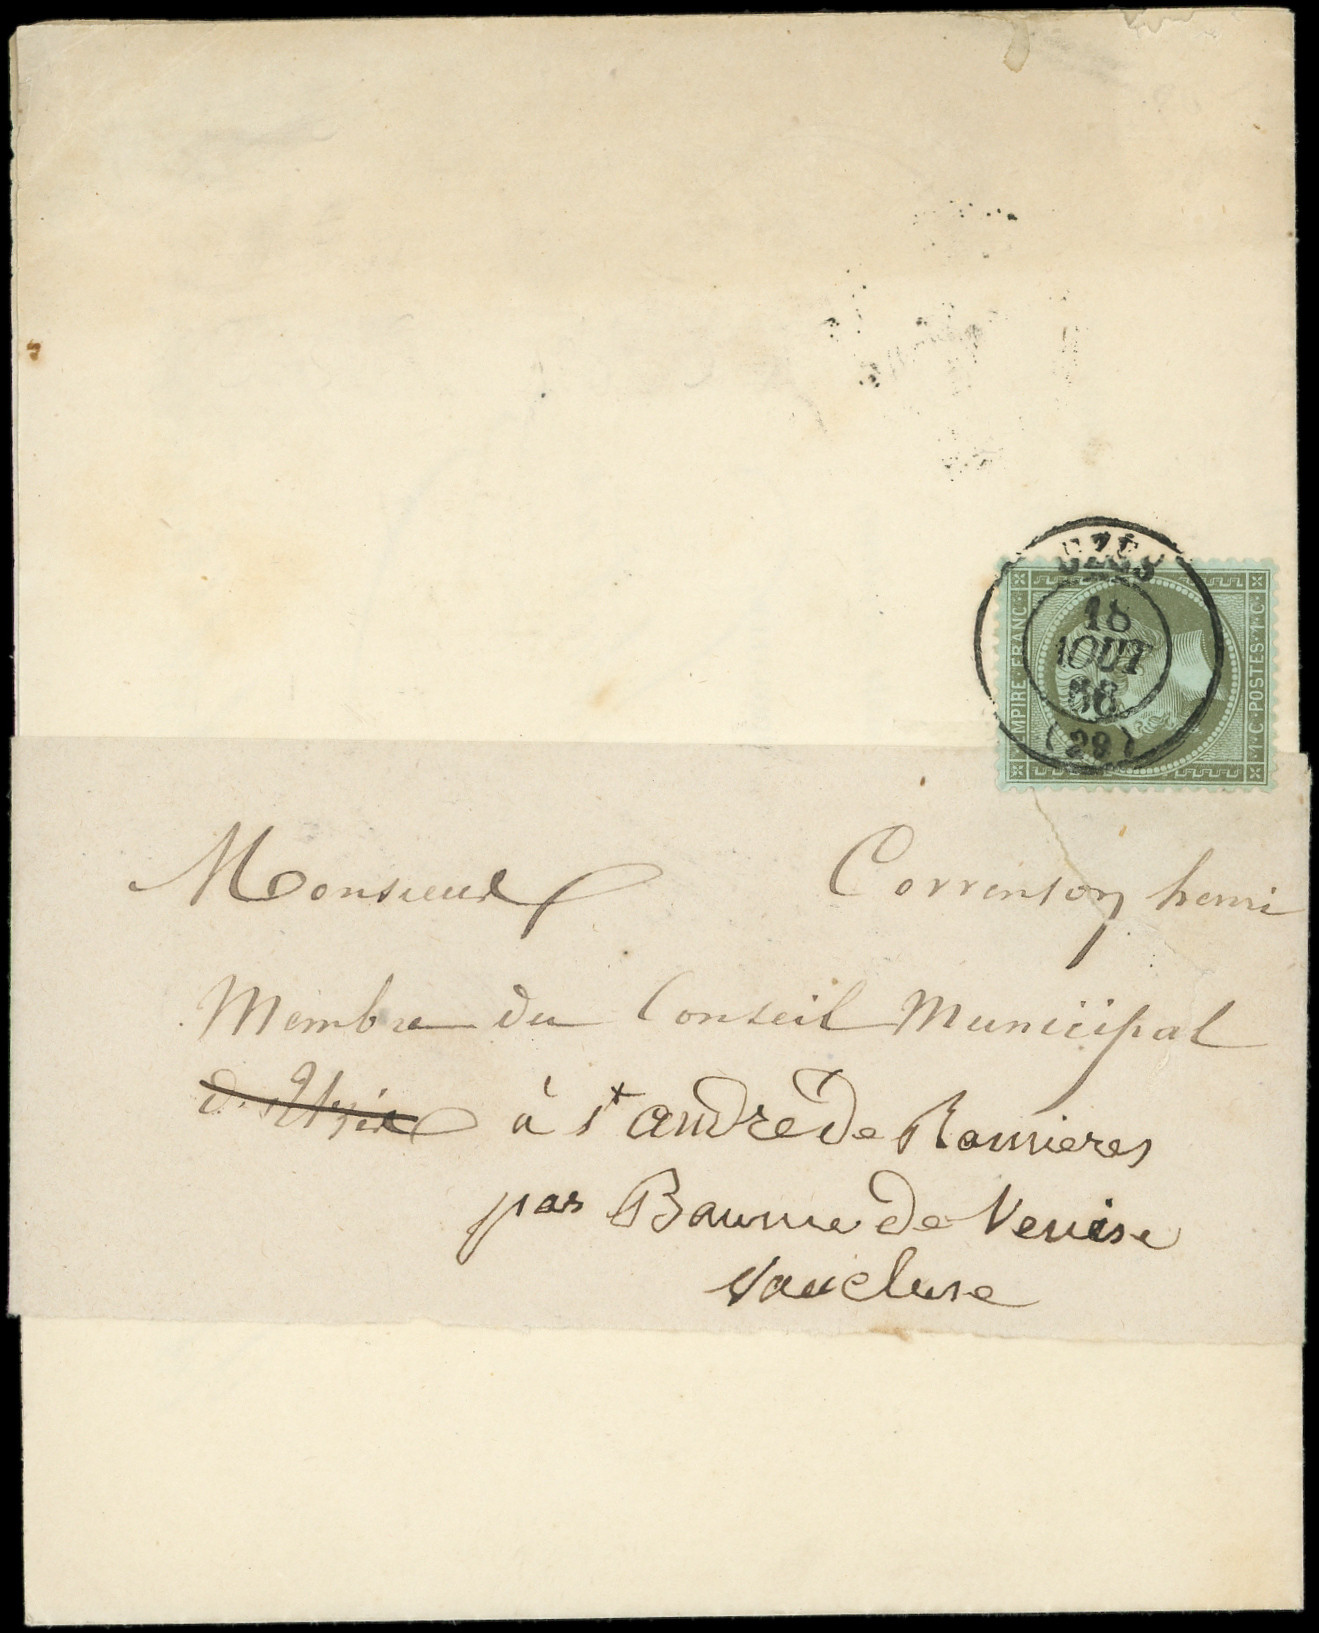 UZÈS
18
AOUT
68
(29)
EMPIRE·FRANC·
1·C·POSTES·1·C·
Monsieur Correnson henri
Membre du Conseil Municipal
d'Uzès à St andré de Ramieres
par Baume de Venise
Vaucluse